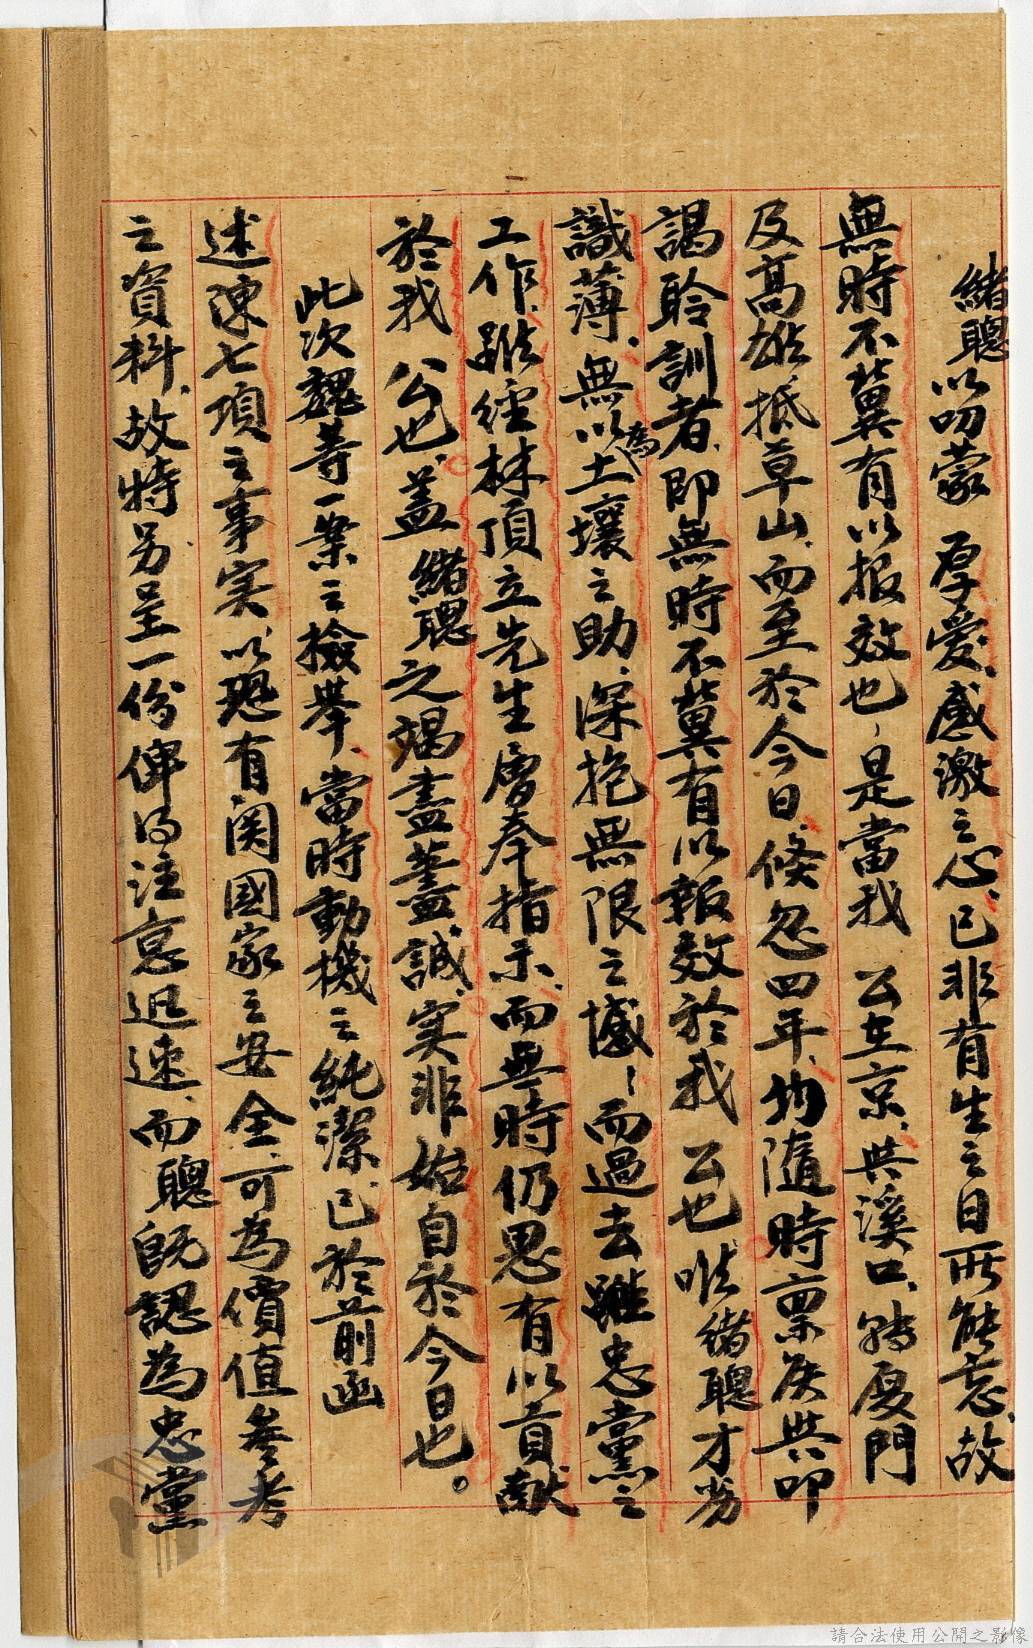 緒聰以叨蒙 厚愛、感激之心、已非有生之日所能忘、故
無時不冀有以報效也，是當我 公在京、與溪口、轉廈門
及高雄抵草山、而至於今日、倏忽四年、均隨時稟候與叩
謁聆訓者、即無時不冀有以報效於我 公也 惟緒聰才劣
識薄、無以為土壤之助、深抱無限之憾，而過去雖忠黨之
工作、雖經林頂立先生層奉指示、而無時仍思有以貢獻
於我 公也、蓋緒聰之竭盡藎誠、实非始自於今日也。
此次魏等一案之檢舉、當時動機之純潔、已於前函
述陳七項之事实、以恐有関國家之安全、可為價值參考
之資料、故特另呈一份俾得注意迅速、而聰既認為忠黨
請合法使用公開之影像